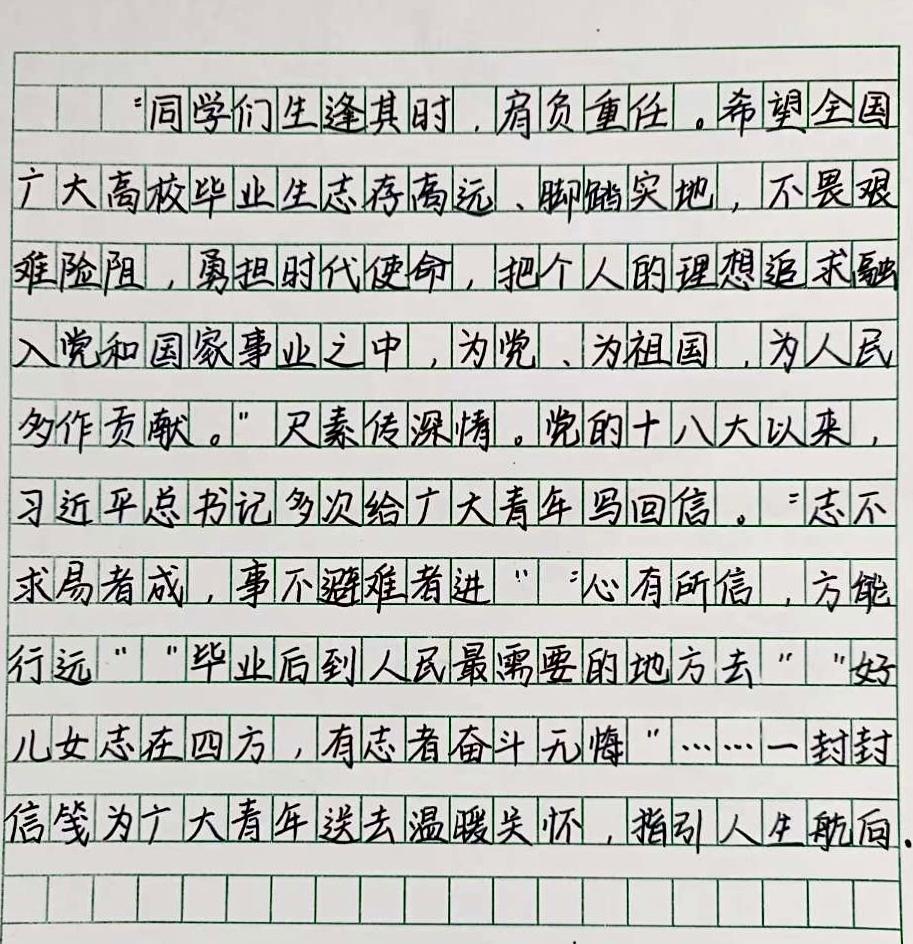 “同学们生逢其时，肩负重任。希望全国
广大高校毕业生志存高远、脚踏实地，不畏艰
难险阻，勇担时代使命，把个人的理想追求融
入党和国家事业之中，为党、为祖国，为人民
多作贡献。”尺素传深情。党的十八大以来，
习近平总书记多次给广大青年写回信。“志不
求易者成，事不避难者进”“心有所信，方能
行远”“毕业后到人民最需要的地方去”“好
儿女志在四方，有志者奋斗无悔”……一封封
信笺为广大青年送去温暖关怀，指引人生航向.